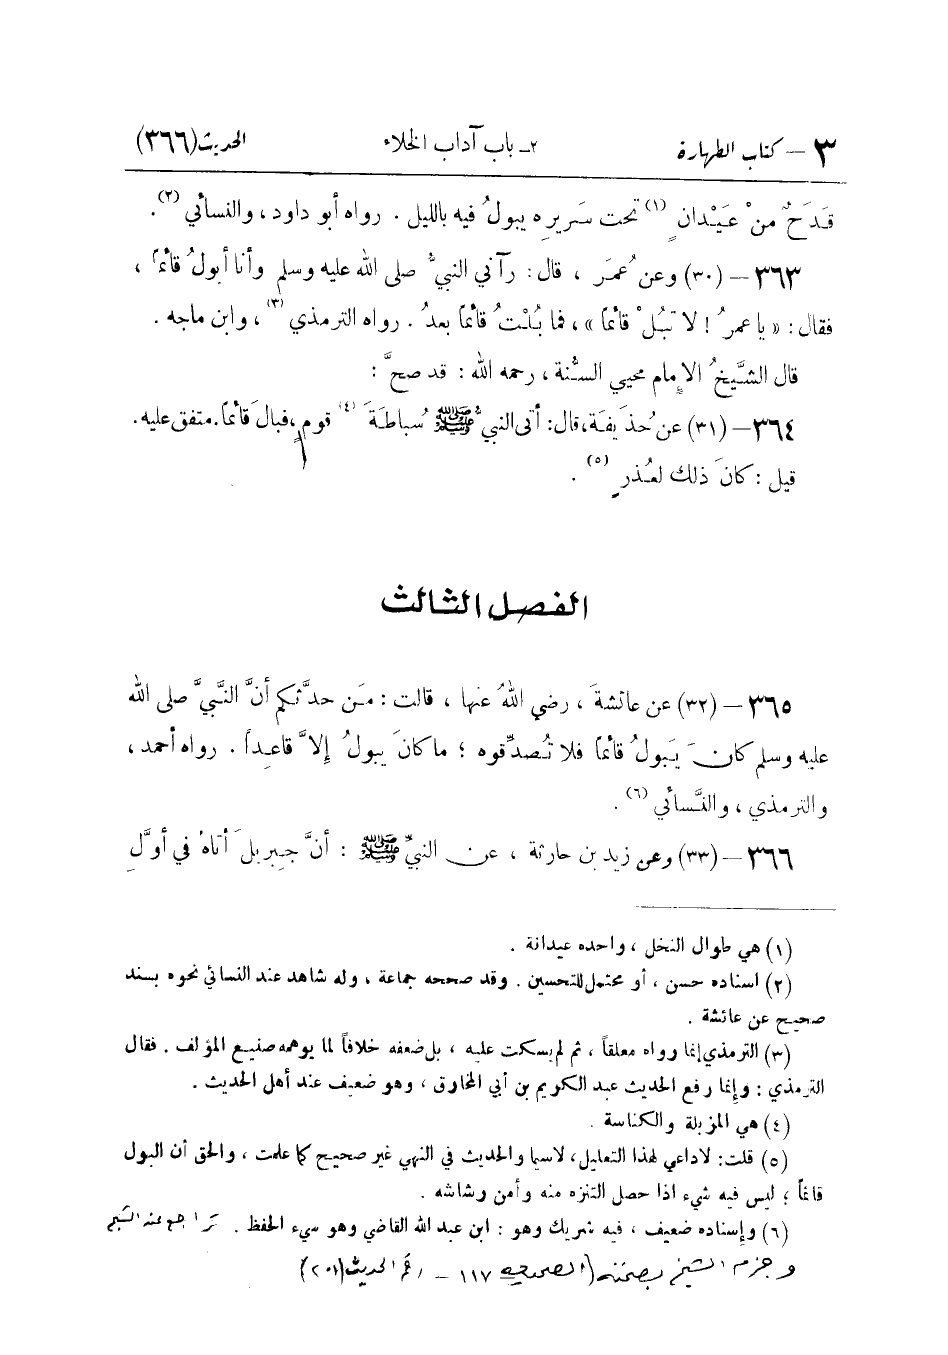 ٣ – كتاب الطهارة ٢ـ باب آداب الخلاء الحديث (٣٦٦)
قَدَحٌ منْ عَيْدانٍ (١) تحت سَريرِه يبولُ فيه بالليل . رواه أبو داود ، والنسائي (٢).
٣٦٣ – (٣٠) وعن عُمرَ ، قال : رآني النبيُّ صلى الله عليه وسلم وأنا أبولُ قائماً ،
فقال : « يا عمرُ ! لا تَبُلْ قائماً » ، فما بُلْتُ قائماً بعدُ . رواه الترمذي (٣) ، وابن ماجه .
قال الشَّيخُ الإمام محيي السُّنة ، رحمه الله : قد صحَّ :
٣٦٤ – (٣١) عن حُذَيفة ، قال : أتى النبيُّ ﷺ سُباطَةَ (٤) قومٍ ، فبالَ قائماً . متفق عليه .
قيل : كانَ ذلك لعُذرٍ (٥) .
الفصل الثالث
٣٦٥ – (٣٢) عن عائشةَ ، رضي اللهُ عنها ، قالت : مَن حدَّثكم أنَّ النَّبيَّ صلى الله
عليه وسلم كانَ يَبولُ قائماً فلا تُصدِّقوه ؛ ما كانَ يبولُ إلاَّ قاعداً . رواه أحمد ،
والترمذي ، والنَّسائي (٦) .
٣٦٦ – (٣٣) وعن زيد بن حارثة ، عن النبيِّ ﷺ : أنَّ جبريلَ أتاهُ في أوَّلِ
(١) هي طوال النخل ، واحده عيدانة .
(٢) اسناده حسن ، أو محتمل للتحسين . وقد صححه جماعة ، وله شاهد عند النسائي نحوه بسند
صحيح عن عائشة .
(٣) الترمذي إنما رواه معلقاً ، ثم لم يسكت عليه ، بل ضعفه خلافاً لما يوهمه صنيع المؤلف . فقال
الترمذي : وإنما رفع الحديث عبد الكريم بن أبي المخارق ، وهو ضعيف عند أهل الحديث .
(٤) هي المزبلة والكناسة .
(٥) قلت : لا داعي لهذا التعليل ، لا سيما والحديث في النهي غير صحيح كما علمت ، والحق أن البول
قائماً ؛ ليس فيه شيء اذا حصل التنزه منه وأمن رشاشه .
(٦) وإسناده ضعيف ، فيه شريك وهو : ابن عبد الله القاضي وهو سيء الحفظ . تراجع عنه الشيخ
وجزم الشيخ بصحته (الصحيحة ١١٧ – رقم الحديث (٢٠١)